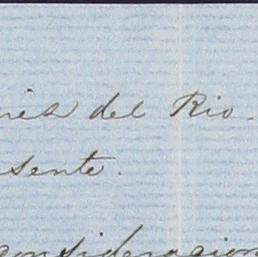 del Rio.
sente.
consideracion